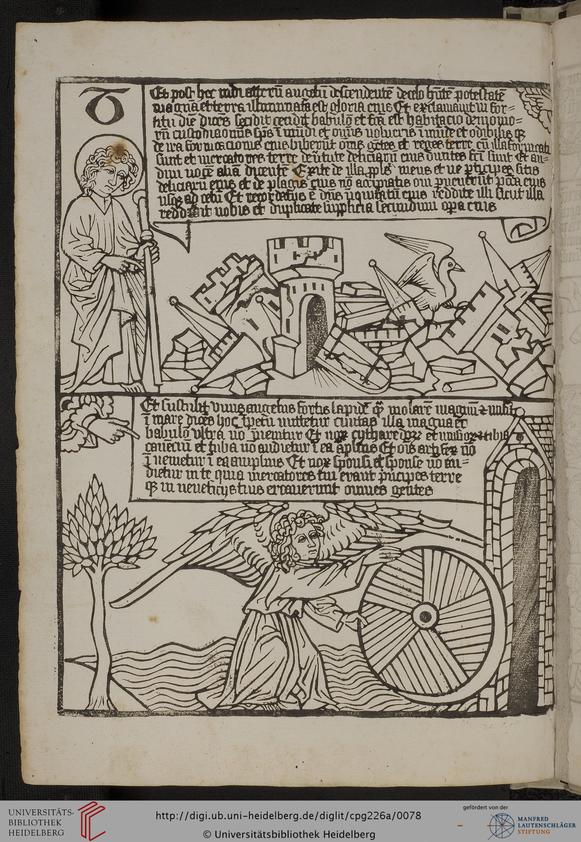 Et post hec vidi alterū angelū descendentē de celo hñtē potestatē
magnā et terra illuminata est gloria eius Et exclamauit in for-
titudine dicēs Cecidit cecidit babilō et fcā est habitacio demonio-
rū custodia oīs spūs īmūdi et omīs volucris īmūde et odibilis q̄
de ira fornicacionis eius biberūt oēs gētes et reges terre cū illa fornicati
sunt et mercatores terre de v̄tute deliciarū eius diuites fcī sunt Et au-
diui vocē aliā dicentē Exite de illa pp̄ls meus et ne p̄ticipes sitis
delictorū eius et de plagis eius nō accipiatis qm̄ puenerūt pcc̄a eius
vsq̄ ad celū Et recordatus ē dn̄s iniquitatū eius reddite illi sicut illa
reddidit vobis et duplicate dupplicia secundum opera eius
Et sustulit vnus angelus fortis lapidē q̄si molarē magnū et misit
ī mare dicēs hoc īpetu mittetur ciuitas illa magna et
babilō vltra nō īuenietur Et vox cytharedorū et musicorū et tibia
canēciū et tuba nō audietur ī ea amplius Et oīs artifex nō
īuenietur ī ea amplius Et vox sponsi et sponse nō au-
dietur in te quia mercatores tui erant pn̄cipes terre
q̄ in veneficijs tuis errauerunt omnes gentes
UNIVERSITÄTS-
BIBLIOTHEK
HEIDELBERG
http://digi.ub.uni-heidelberg.de/diglit/cpg226a/0078
© Universitätsbibliothek Heidelberg
gefördert von der
MANFRED
LAUTENSCHLÄGER
STIFTUNG